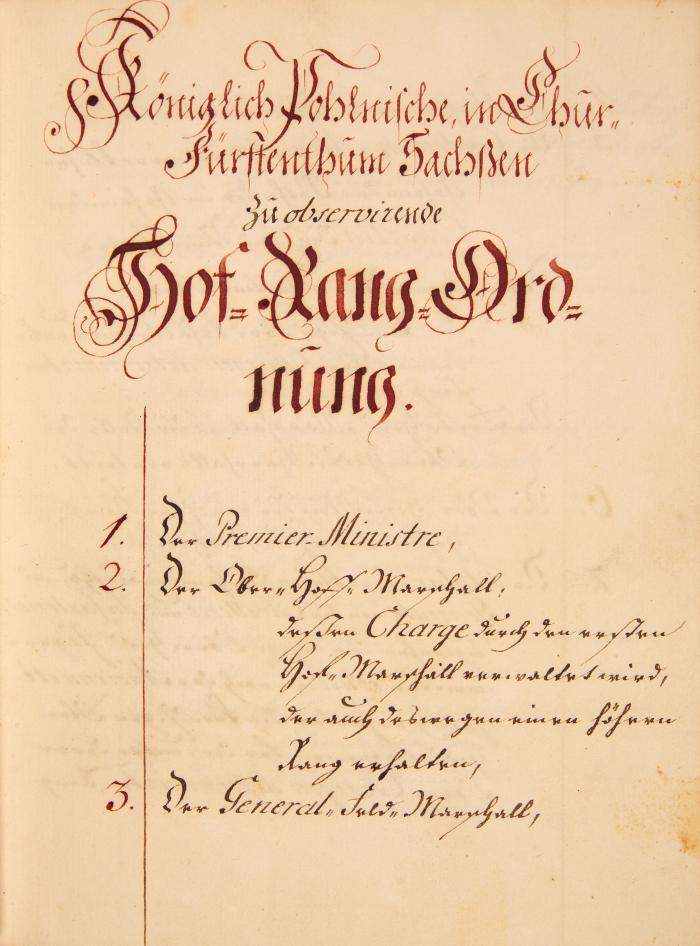 Königlich Pohlnische, in Chur=
Fürstenthum Sachßen
zu observirende
Hof= Rang= Ord=
nung.
1. Der Premier-Ministre,
2. Der Ober= Hoff= Marschall,
deßen Charge durch den ersten
Hof= Marschall verwaltet wird,
der auch deswegen einen höhern
Rang erhalten,
3. Der General= Feld= Marschall,